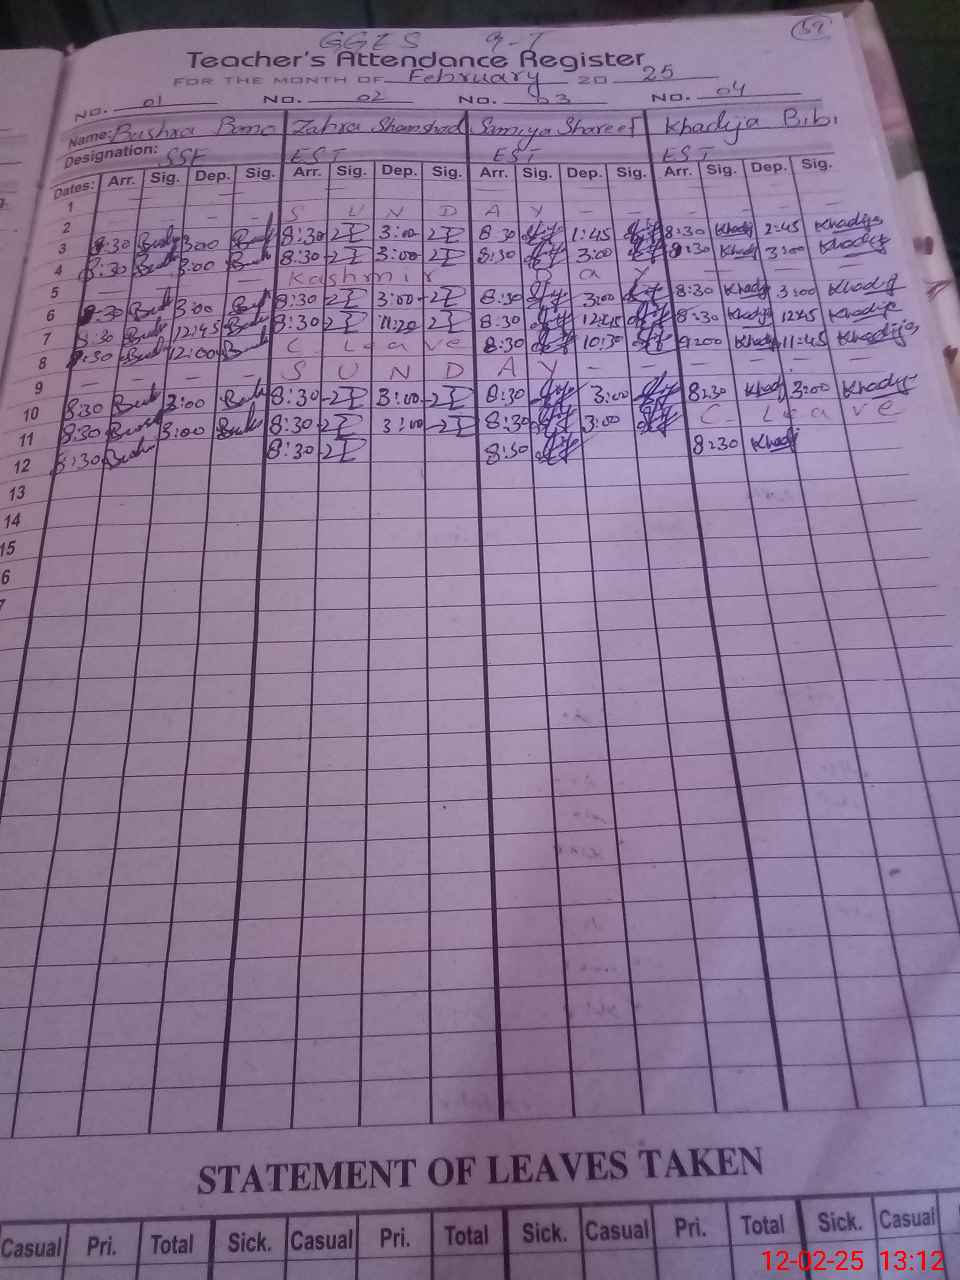 59
GGES 9-T
Teacher's Attendance Register
FOR THE MONTH OF February 20 25
NO. 01 NO. 02 NO. 03 NO. 04
Name: Bushra Bano Zahra Shamshad Samiya Shareef Khadija Bibi
Designation: SSE EST EST EST
Dates: Arr. Sig. Dep. Sig. Arr. Sig. Dep. Sig. Arr. Sig. Dep. Sig. Arr. Sig. Dep. Sig.
1
2 — — — — S U N D A Y — — — — —
3 8:30 3:00 8:30 3:00 8:30 1:45 8:30 Khadij 2:45 Khadija
4 8:30 3:00 8:30 3:00 8:30 3:00 8:30 Khadij 3:00 Khadija
5 — — — — Kashmir Day — — — —
6 8:30 3:00 8:30 3:00 8:30 3:00 8:30 Khadij 3:00 Khadija
7 8:30 12:45 8:30 11:20 8:30 12:45 8:30 Khadij 12:45 Khadija
8 8:30 12:00 C. Leave 8:30 10:30 9:00 Khadij 11:45 Khadija
9 — — — — S U N D A Y — — — — —
10 8:30 3:00 8:30 3:00 8:30 3:00 8:30 Khadij 3:00 Khadija
11 8:30 3:00 8:30 3:00 8:30 3:00 C. Leave
12 8:30 8:30 8:30 8:30 Khadij
13
14
15
6
7
STATEMENT OF LEAVES TAKEN
Casual Pri. Total Sick. Casual Pri. Total Sick. Casual Pri. Total Sick. Casual
12-02-25 13:12